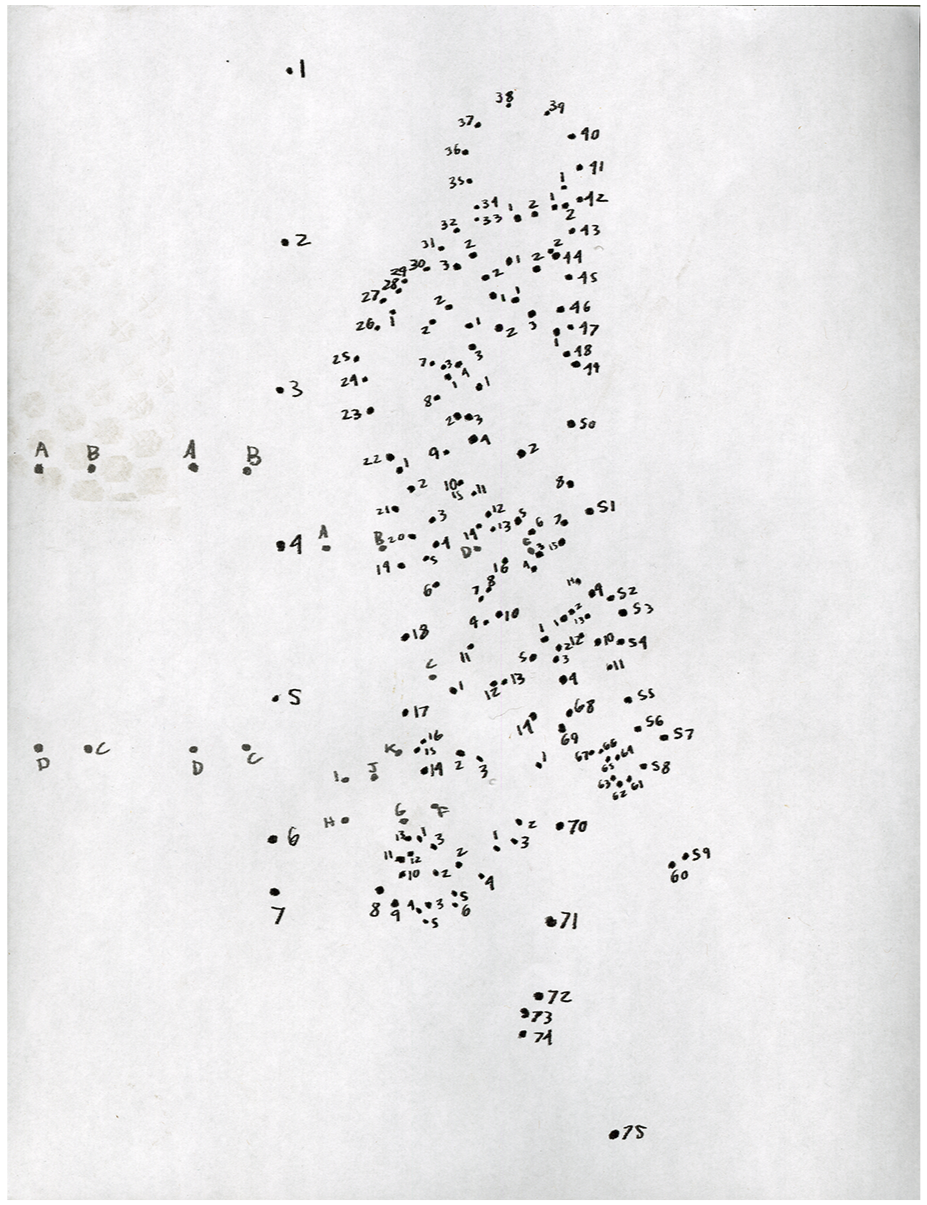 1
38
39
37
40
36
41
35
1
34 1 2 1 42
33 2
32 43
31 2 2
30 3 1 2 44
29 2 45
28
27 2 1 1 46
26 1 2 1 2 3 47
1
25 7 3 3 48
24 4 1 1 49
3
8
23 2 3 50
A B A B
4
22 1 9 2
2 10 11 8
15
21 3 12 5 51
4 A B 20 4 14 13 6 7
D C 3 15
19 5 16 4
6 7 8 14 9 52
9 10 1 2 13 53
18 1 2 12 10 54
11 5 3 11
C 1 12 13 4
5 55
17 14 68
16 69 56
D C D C K 15 67 66 57
14 2 3 1 65 64 58
I J 63 62 61
H G F
6 13 1 3 1 2 70
11 12 2 3 59
10 2 4 60
7 8 9 4 3 5
5 6 71
72
73
74
75